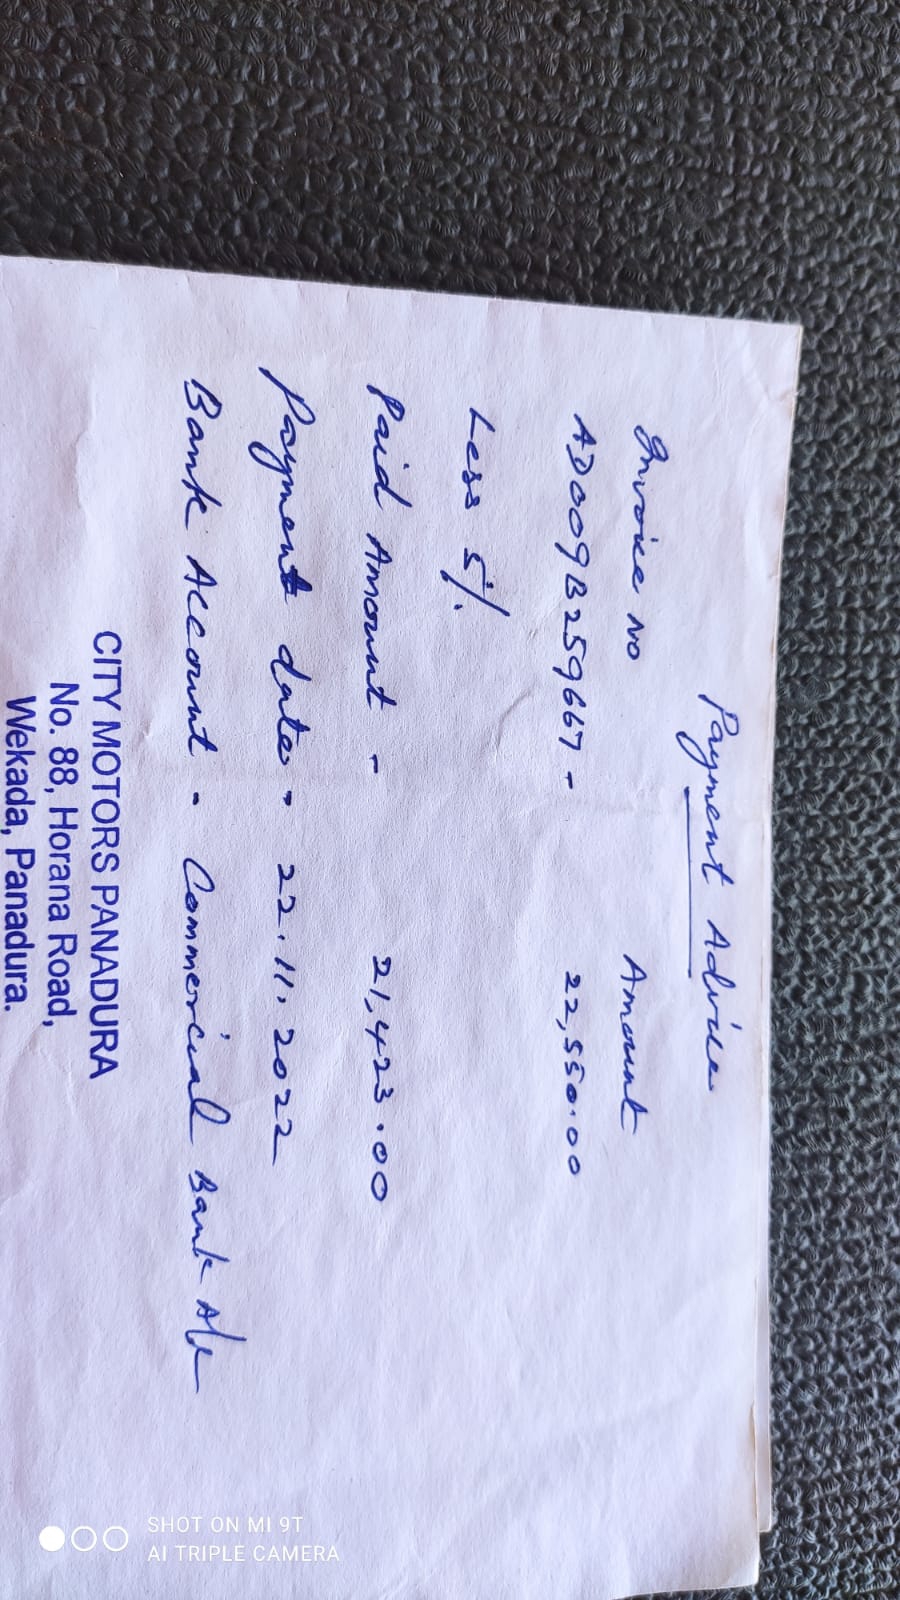 Payment Advice
Invoice no Amount
AD009B259667 - 22,550.00
Less 5%
Paid Amount - 21,423.00
Payment date - 22.11.2022
Bank Account - Commercial Bank A/c
CITY MOTORS PANADURA
No. 88, Horana Road,
Wekada, Panadura.
SHOT ON MI 9T
AI TRIPLE CAMERA